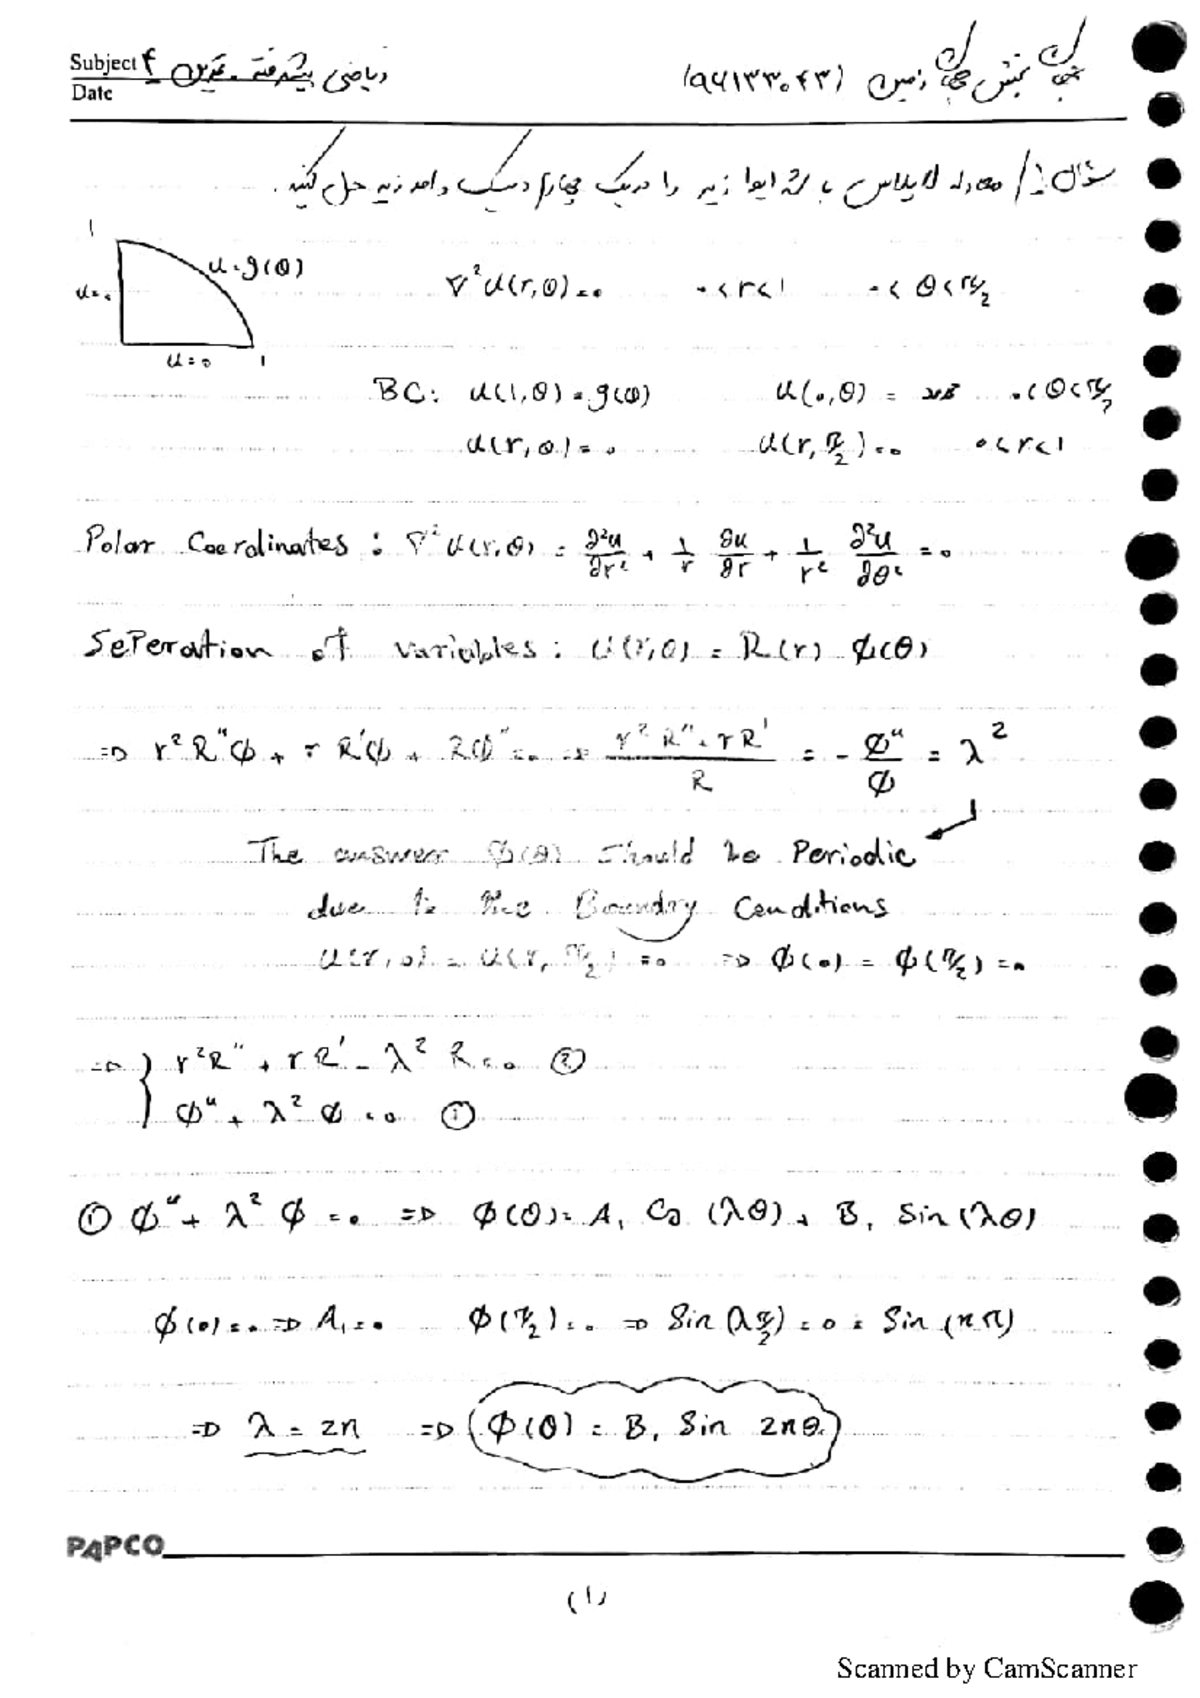 Subject ریاضی پیشرفته - تمرین ۴
Date
(۹۶۱۳۳۰۴۳)
سؤال ۱/ معادله لاپلاس با شرایط زیر را در یک چهارم دیسک واحد زیر حل کنید.
1
u = g(θ)
u = 0
u = 0
1
∇²u(r,θ) = 0    0 < r < 1    0 < θ < π/2
BC: u(1,θ) = g(θ)    u(0,θ) =    0 < θ < π/2
u(r,0) = 0    u(r, π/2) = 0    0 < r < 1
Polar Coordinates : ∇²u(r,θ) = ∂²u/∂r² + 1/r ∂u/∂r + 1/r² ∂²u/∂θ² = 0
SePeration of variables : u(r,θ) = R(r) ϕ(θ)
⇒ r²R"ϕ + r R'ϕ + Rϕ" = 0 ⇒ (r²R" + rR')/R = - ϕ"/ϕ = λ²
The answer ϕ(θ) should be Periodic
due to the Boundry Conditions
u(r,0) = u(r, π/2) = 0 ⇒ ϕ(0) = ϕ(π/2) = 0
⇒ { r²R" + rR' - λ²R = 0 ②
ϕ" + λ²ϕ = 0 ①
① ϕ" + λ²ϕ = 0 ⇒ ϕ(θ) = A₁ Cos(λθ) + B₁ Sin(λθ)
ϕ(0) = 0 ⇒ A₁ = 0    ϕ(π/2) = 0 ⇒ Sin(λπ/2) = 0 = Sin(nπ)
⇒ λ = 2n ⇒ ϕ(θ) = B₁ Sin 2nθ
PAPCO
(1)
Scanned by CamScanner